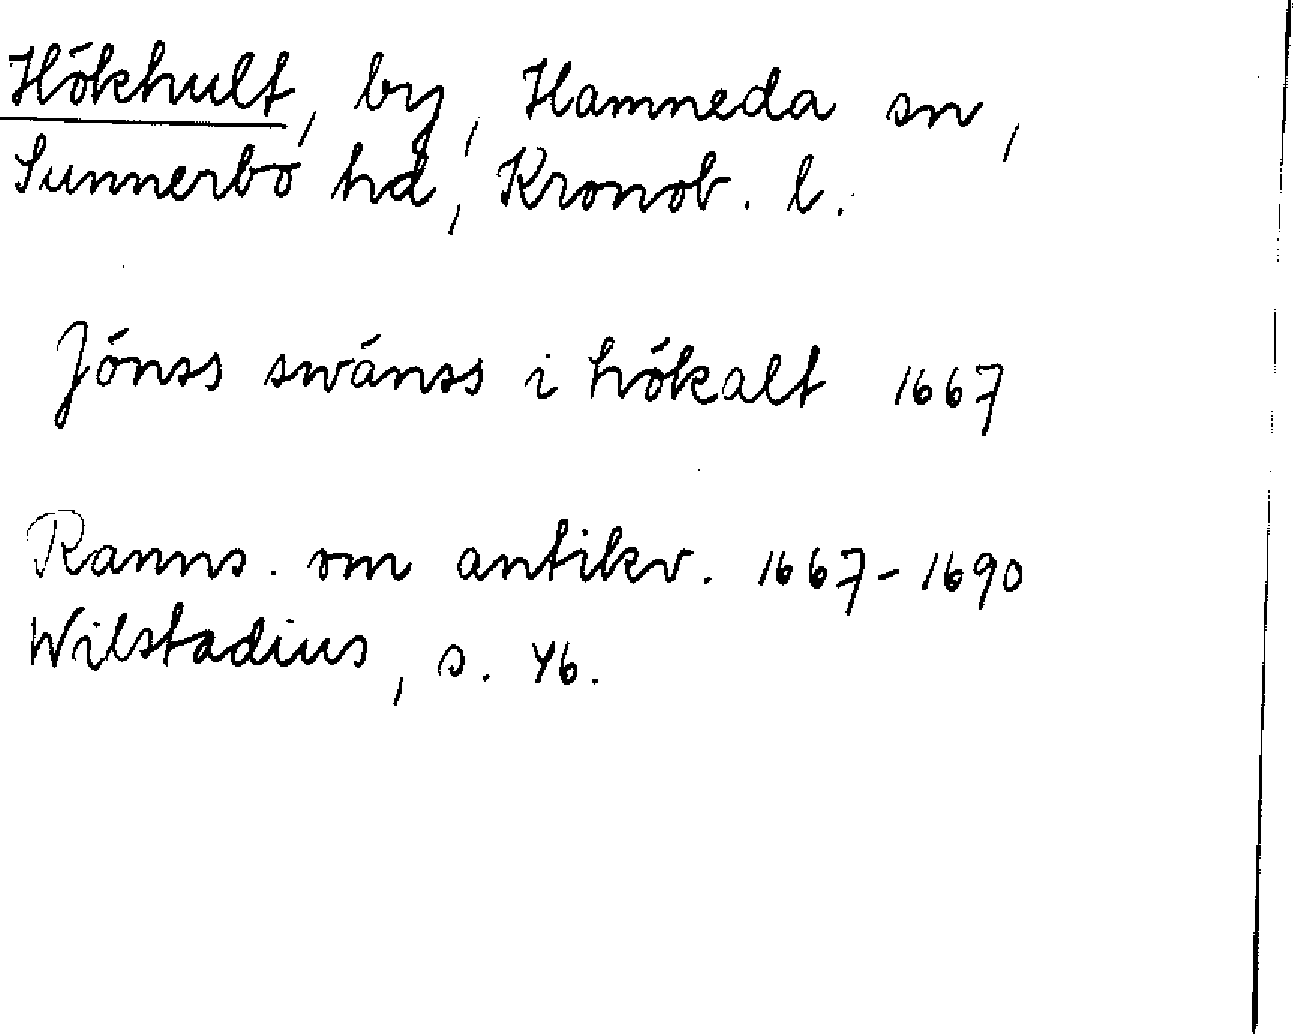 Hökhult, by, Hamneda sn,
Sunnerbo hd, Kronob. l.
Jönss swänss i hökalt 1667
Ranns. om antikv. 1667-1690
Wilstadius, s. 46.